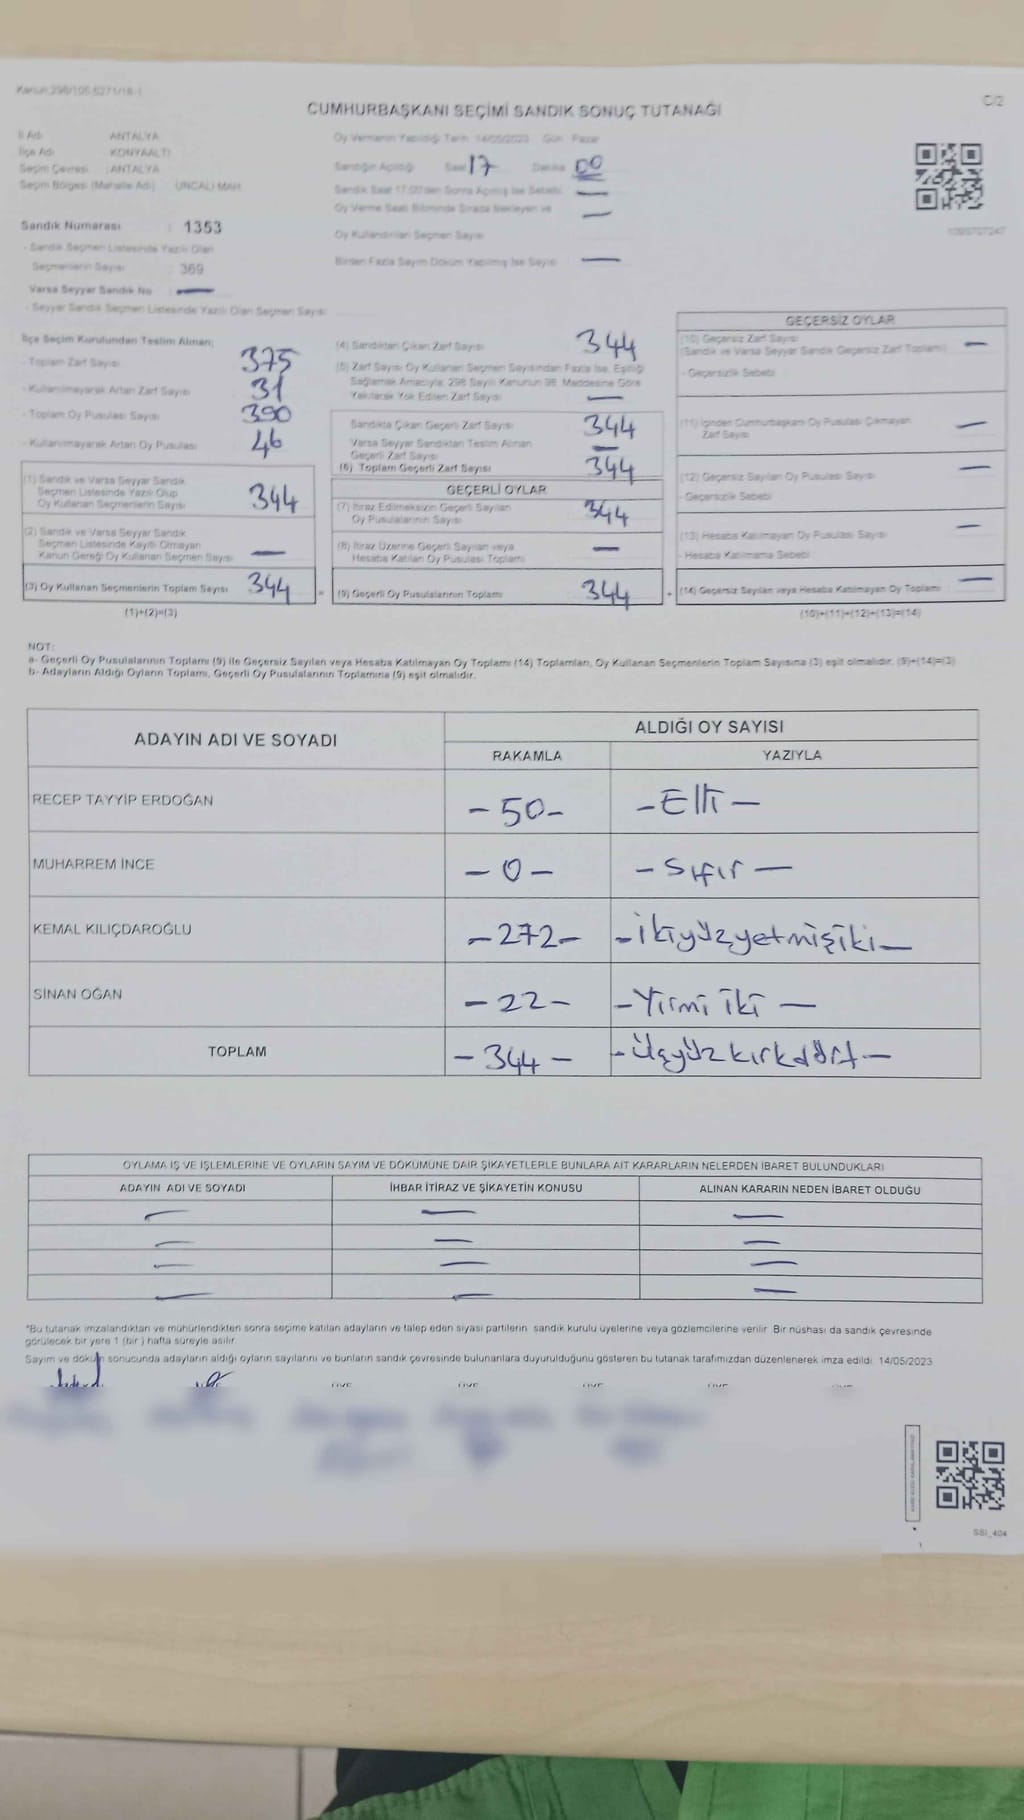 Kanun:298/105,6271/18-1
C/2
CUMHURBAŞKANI SEÇİMİ SANDIK SONUÇ TUTANAĞI
İl Adı : ANTALYA
İlçe Adı : KONYAALTI
Seçim Çevresi : ANTALYA
Seçim Bölgesi (Mahalle Adı) : UNCALI MAH.
Sandık Numarası : 1353
- Sandık Seçmen Listesinde Yazılı Olan
Seçmenlerin Sayısı : 369
Varsa Seyyar Sandık No : —
- Seyyar Sandık Seçmen Listesinde Yazılı Olan Seçmen Sayısı
Oy Vermenin Yapıldığı Tarih: 14/05/2023 Gün : Pazar
Sandığın Açıldığı Saat 17 Dakika 00
Sandık Saat 17.00'den Sonra Açılmış İse Sebebi —
Oy Verme Saati Bitiminde Sırada Bekleyen ve —
Oy Kullandırılan Seçmen Sayısı
Birden Fazla Sayım Döküm Yapılmış İse Sayısı —
İlçe Seçim Kurulundan Teslim Alınan;
- Toplam Zarf Sayısı 375
- Kullanılmayarak Artan Zarf Sayısı 31
- Toplam Oy Pusulası Sayısı 390
- Kullanılmayarak Artan Oy Pusulası 46
(1) Sandık ve Varsa Seyyar Sandık
Seçmen Listesinde Yazılı Olup
Oy Kullanan Seçmenlerin Sayısı 344
(2) Sandık ve Varsa Seyyar Sandık
Seçmen Listesinde Kayıtlı Olmayan
Kanun Gereği Oy Kullanan Seçmen Sayısı —
(3) Oy Kullanan Seçmenlerin Toplam Sayısı 344
(1)+(2)=(3)
(4) Sandıktan Çıkan Zarf Sayısı 344
(5) Zarf Sayısı Oy Kullanan Seçmen Sayısından Fazla İse, Eşitliği
Sağlamak Amacıyla, 298 Sayılı Kanunun 98. Maddesine Göre
Yakılarak Yok Edilen Zarf Sayısı —
Sandıkta Çıkan Geçerli Zarf Sayısı 344
Varsa Seyyar Sandıktan Teslim Alınan
Geçerli Zarf Sayısı —
(6) Toplam Geçerli Zarf Sayısı 344
GEÇERLİ OYLAR
(7) İtiraz Edilmeksizin Geçerli Sayılan
Oy Pusulalarının Sayısı 344
(8) İtiraz Üzerine Geçerli Sayılan veya
Hesaba Katılan Oy Pusulası Toplamı —
= (9) Geçerli Oy Pusulalarının Toplamı 344
GEÇERSİZ OYLAR
(10) Geçersiz Zarf Sayısı
(Sandık ve Varsa Seyyar Sandık Geçersiz Zarf Toplamı) —
- Geçersizlik Sebebi
(11) İçinden Cumhurbaşkanı Oy Pusulası Çıkmayan
Zarf Sayısı —
(12) Geçersiz Sayılan Oy Pusulası Sayısı —
- Geçersizlik Sebebi
(13) Hesaba Katılmayan Oy Pusulası Sayısı —
- Hesaba Katılmama Sebebi
+ (14) Geçersiz Sayılan veya Hesaba Katılmayan Oy Toplamı —
(10)+(11)+(12)+(13)=(14)
NOT:
a- Geçerli Oy Pusulalarının Toplamı (9) ile Geçersiz Sayılan veya Hesaba Katılmayan Oy Toplamı (14) Toplamları, Oy Kullanan Seçmenlerin Toplam Sayısına (3) eşit olmalıdır. (9)+(14)=(3)
b- Adayların Aldığı Oyların Toplamı, Geçerli Oy Pusulalarının Toplamına (9) eşit olmalıdır.
ADAYIN ADI VE SOYADI
ALDIĞI OY SAYISI
RAKAMLA YAZIYLA
RECEP TAYYİP ERDOĞAN -50- -Elli-
MUHARREM İNCE -0- -Sıfır-
KEMAL KILIÇDAROĞLU -272- -ikiyüzyetmişiki-
SİNAN OĞAN -22- -Yirmi iki-
TOPLAM -344- -Üçyüzkırkdört-
OYLAMA İŞ VE İŞLEMLERİNE VE OYLARIN SAYIM VE DÖKÜMÜNE DAİR ŞİKAYETLERLE BUNLARA AİT KARARLARIN NELERDEN İBARET BULUNDUKLARI
ADAYIN ADI VE SOYADI İHBAR İTİRAZ VE ŞİKAYETİN KONUSU ALINAN KARARIN NEDEN İBARET OLDUĞU
— — —
— — —
— — —
— — —
*Bu tutanak imzalandıktan ve mühürlendikten sonra seçime katılan adayların ve talep eden siyasi partilerin sandık kurulu üyelerine veya gözlemcilerine verilir. Bir nüshası da sandık çevresinde
görülecek bir yere 1 (bir ) hafta süreyle asılır.
Sayım ve döküm sonucunda adayların aldığı oyların sayılarını ve bunların sandık çevresinde bulunanlara duyurulduğunu gösteren bu tutanak tarafımızdan düzenlenerek imza edildi. 14/05/2023
SSI_404
1